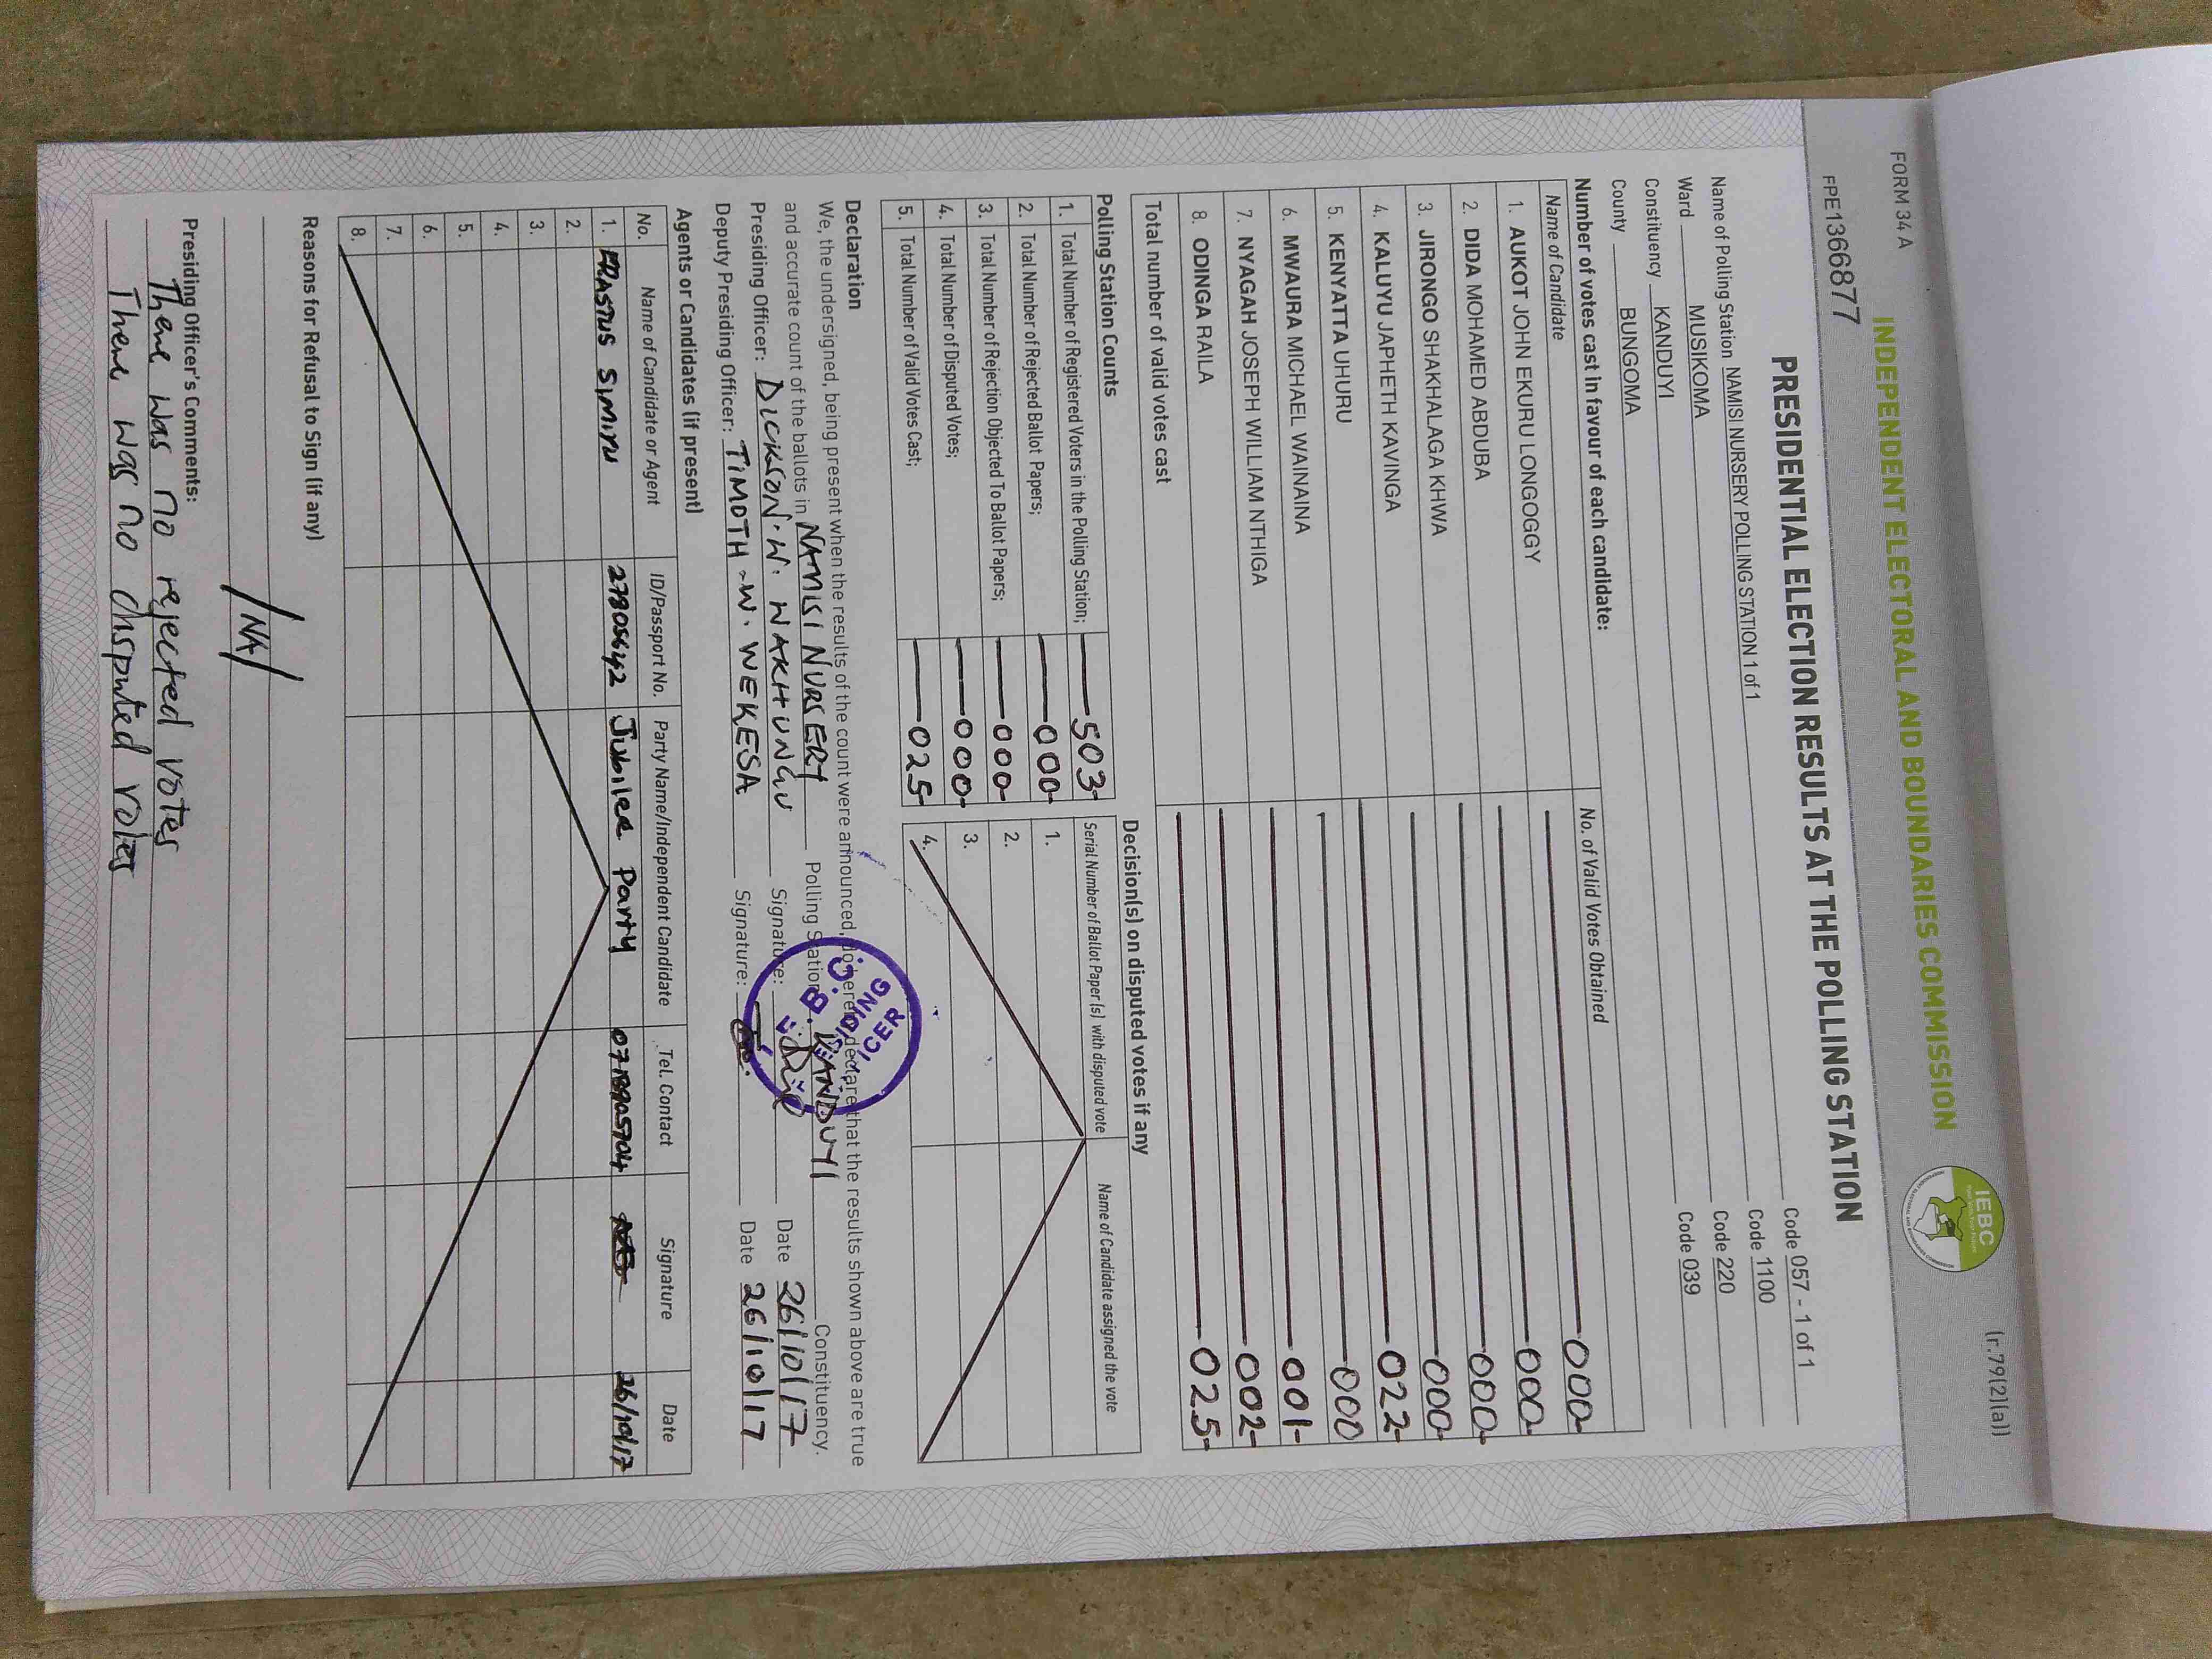 FORM 34 A
(r.79(2)(a))
INDEPENDENT ELECTORAL AND BOUNDARIES COMMISSION
IEBC
FPE1366877
PRESIDENTIAL ELECTION RESULTS AT THE POLLING STATION
Name of Polling Station NAMISI NURSERY POLLING STATION 1 of 1 Code 057 - 1 of 1
Ward MUSIKOMA Code 1100
Constituency KANDUYI Code 220
County BUNGOMA Code 039
Number of votes cast in favour of each candidate:
Name of Candidate No. of Valid Votes Obtained
1. AUKOT JOHN EKURU LONGOGGY 000
2. DIDA MOHAMED ABDUBA 000
3. JIRONGO SHAKHALAGA KHWA 000
4. KALUYU JAPHETH KAVINGA 000
5. KENYATTA UHURU 022
6. MWAURA MICHAEL WAINAINA 000
7. NYAGAH JOSEPH WILLIAM NTHIGA 001
8. ODINGA RAILA 002
Total number of valid votes cast 025
Polling Station Counts
1. Total Number of Registered Voters in the Polling Station; 503
2. Total Number of Rejected Ballot Papers; 000
3. Total Number of Rejection Objected To Ballot Papers; 000
4. Total Number of Disputed Votes; 000
5. Total Number of Valid Votes Cast; 025
Decision(s) on disputed votes if any
Serial Number of Ballot Paper (s) with disputed vote Name of Candidate assigned the vote
1.
2.
3.
4.
Declaration
We, the undersigned, being present when the results of the count were announced, do hereby declare that the results shown above are true
and accurate count of the ballots in NAMISI NURSERY Polling Station KANDUYI Constituency.
Presiding Officer: DICKSON. W. WAKHUNGU Signature: Date 26/10/17
Deputy Presiding Officer: TIMOTH W. WEKESA Signature: Date 26/10/17
Agents or Candidates (if present)
No. Name of Candidate or Agent ID/Passport No. Party Name/Independent Candidate Tel. Contact Signature Date
1. ERASTUS SIMIYU 27805642 Jubilee Party 26/10/17
2.
3.
4.
5.
6.
7.
8.
Reasons for Refusal to Sign (if any)
NA
Presiding Officer's Comments:
There was no rejected votes
There was no disputed votes